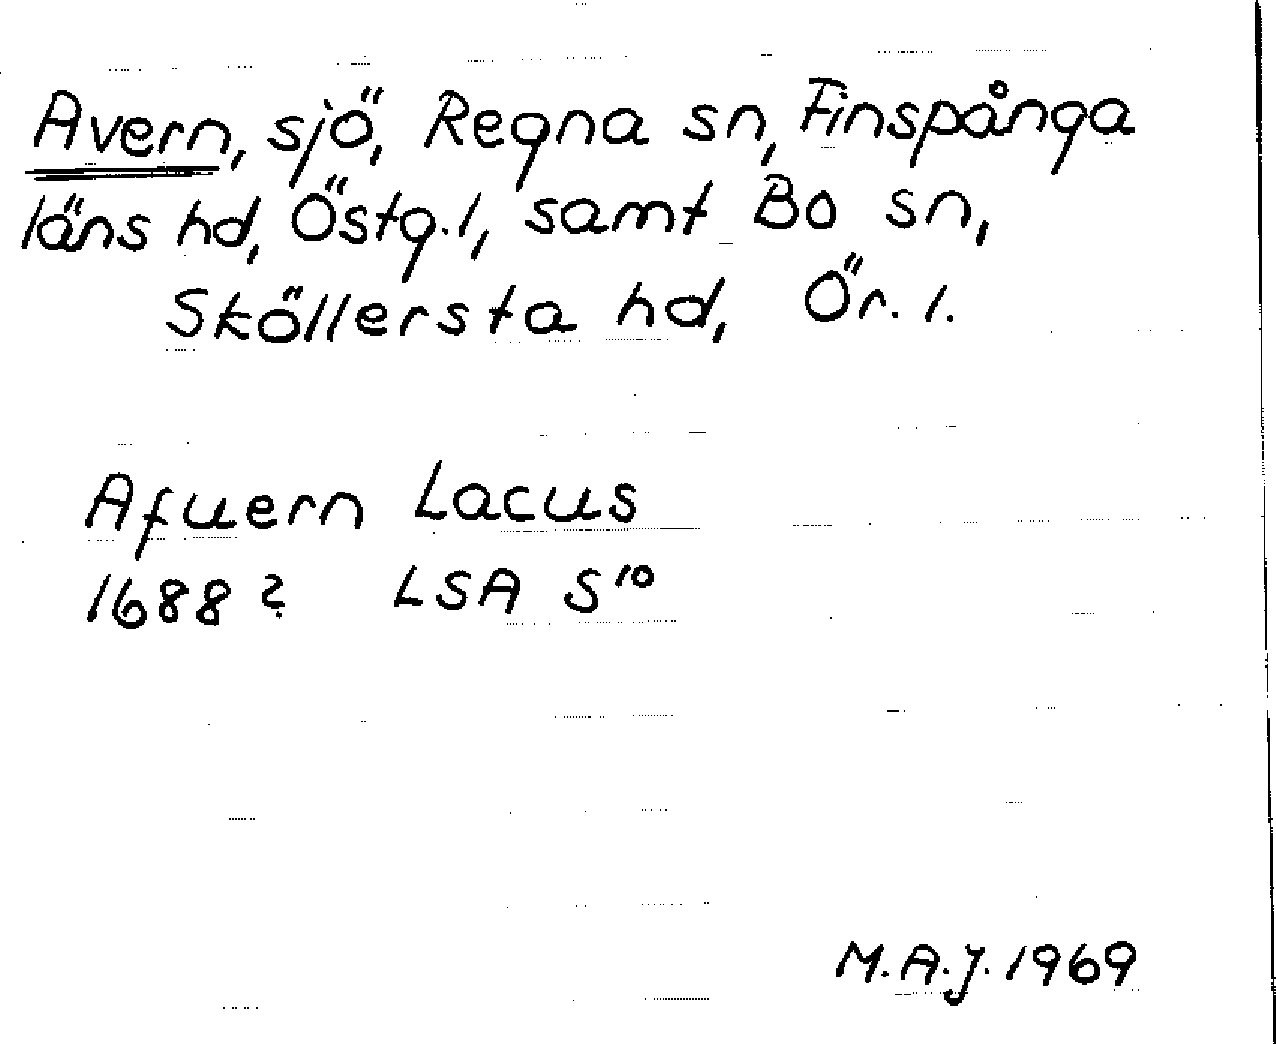 Avern, sjö, Regna sn, Finspånga
läns hd, Östg.l, samt Bo sn,
Sköllersta hd, Ör. l.
Afuern Lacus
1688? LSA S10
M.A.J. 1969